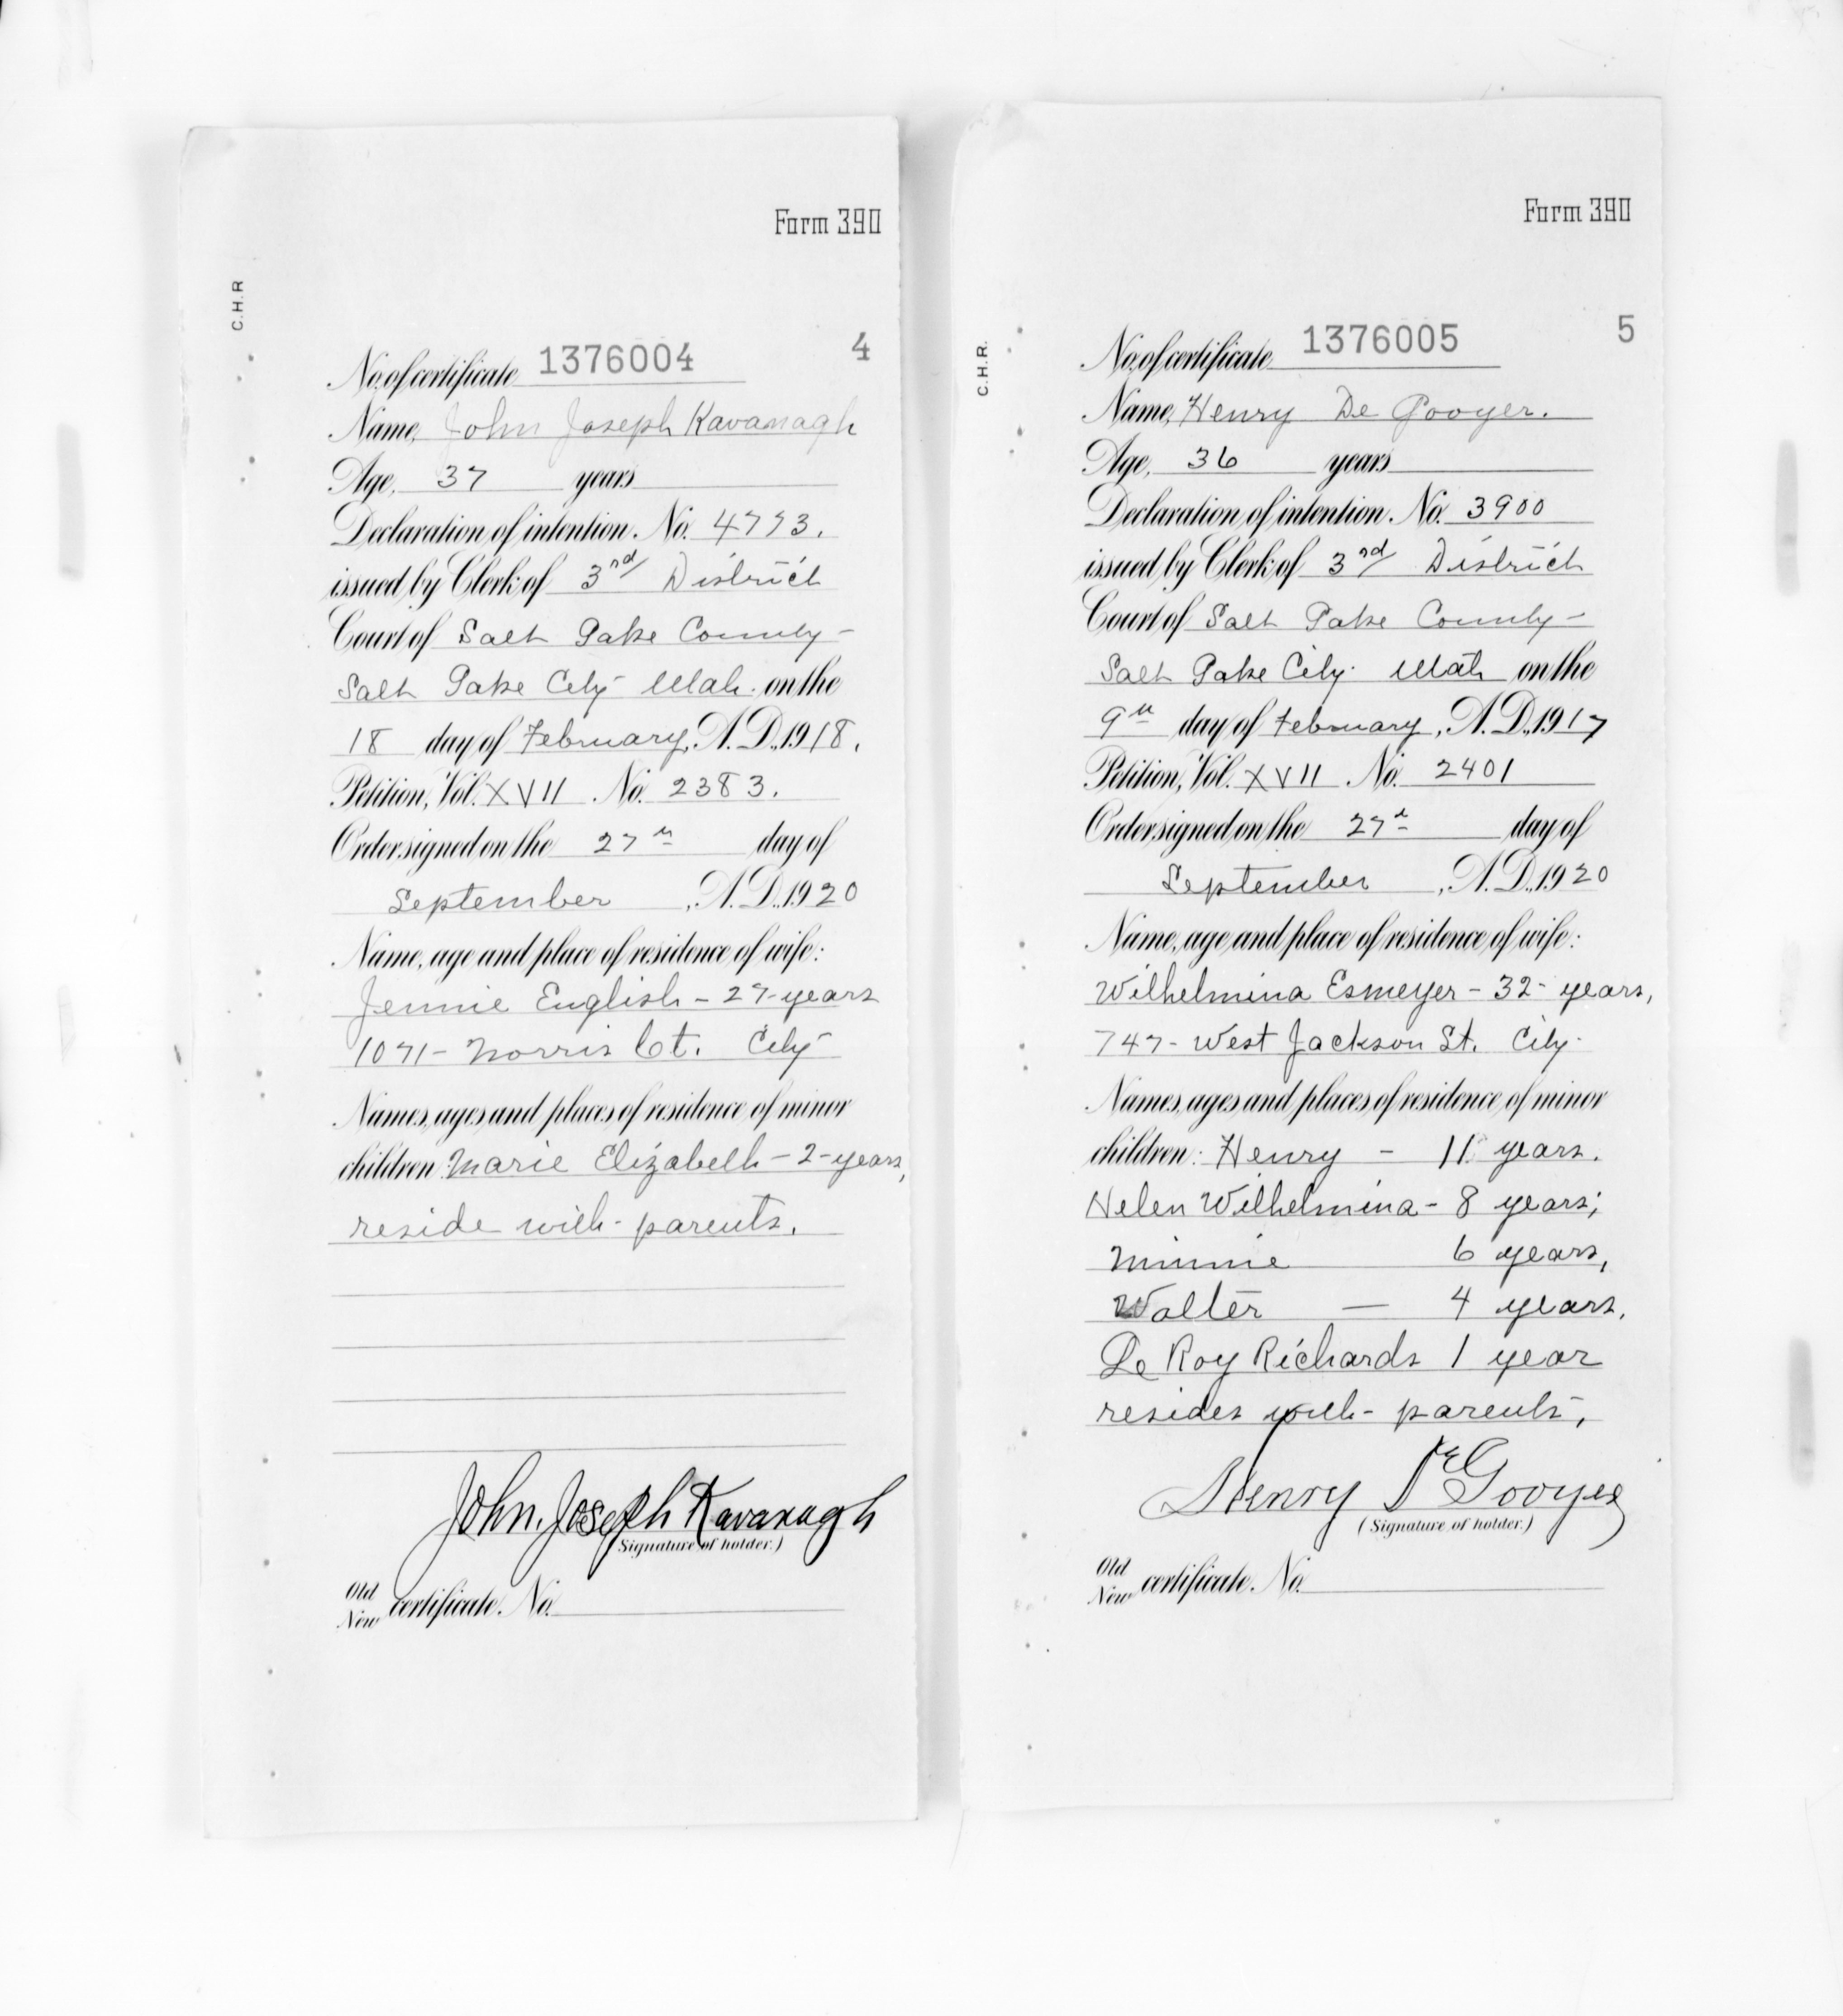 Form 390
C.H.R
No. of certificate 1376004 4
Name, John Joseph Kavanagh
Age, 37 years
Declaration of intention No. 4773.
issued by Clerk of 3rd District
Court of Salt Lake County -
Salt Lake City - Utah. on the
18 day of February, A.D., 1918.
Petition, Vol. XVII No. 2383.
Order signed on the 27th day of
September, A.D., 1920
Name, age and place of residence of wife:
Jennie English - 27 - years
1071 - Norris Ct. City -
Names, ages and places of residence of minor
children: Marie Elizabeth - 2 - years,
reside with - parents.
John Joseph Kavanagh
(Signature of holder.)
Old
New certificate No.
Form 390
C.H.R.
No. of certificate 1376005 5
Name, Henry De Gooyer.
Age, 36 years
Declaration of intention No. 3900
issued by Clerk of 3rd District
Court of Salt Lake County -
Salt Lake City. Utah on the
9th day of February, A.D., 1917
Petition, Vol. XVII No. 2401
Order signed on the 27th day of
September, A.D., 1920
Name, age and place of residence of wife:
Wilhelmina Esmeyer - 32 - years,
747 - West Jackson St. City -
Names, ages and places of residence of minor
children: Henry - 11 years.
Helen Wilhelmina - 8 years;
Minnie 6 years,
Walter — 4 years.
Le Roy Richards 1 year
resides with - parents,
Henry De Gooyer
(Signature of holder.)
Old
New certificate No.